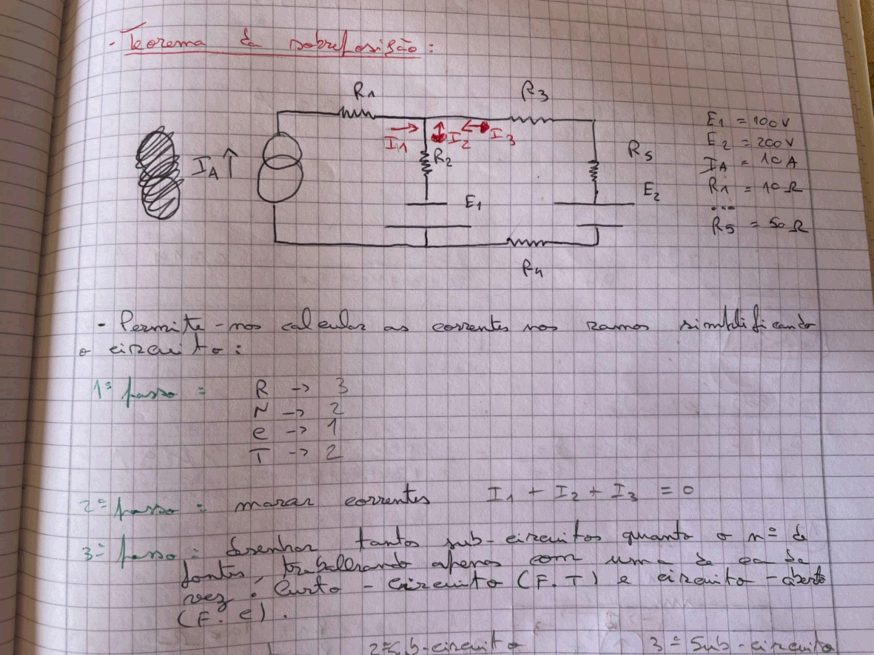 - Teorema da sobreposição:
R1
R3
E1 = 100V
E2 = 200V
IA = 10A
R1 = 10Ω
...
R5 = 50Ω
I1
I2
I3
IA ↑
R2
R5
E1
E2
R4
- Permite-nos calcular as correntes nos ramos simplificando
o circuito:
1º passo: R -> 3
N -> 2
e -> 1
T -> 2
2º passo: marcar correntes I1 + I2 + I3 = 0
3º passo: desenhar tantos sub-circuitos quanto o nº de
fontes, trabalhando apenas com uma de cada
vez. Curto-circuito (F.T) e circuito-aberto
(F.e).
3º Sub-circuito